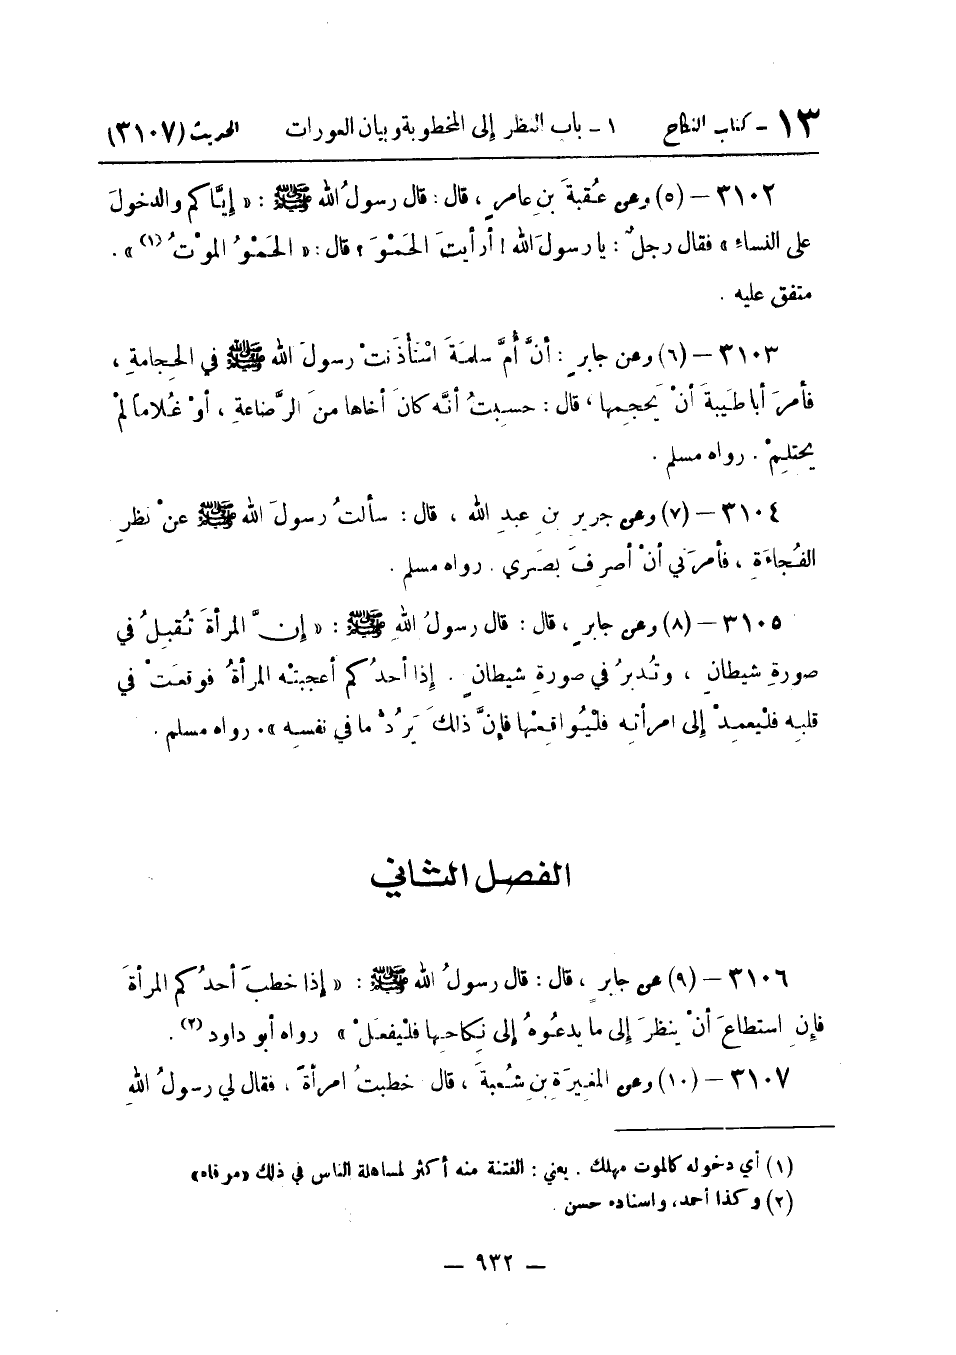 ١٣ - كتاب النكاح ١ - باب النظر إلى المخطوبة وبيان العورات الحديث (٣١٠٧)
٣١٠٢ – (٥) وعن عُقبةَ بنِ عامرٍ ، قال : قال رسولُ الله ﷺ : « إيَّاكم والدخولَ
على النساءِ » فقال رجلٌ : يا رسولَ الله ! أرأيتَ الحَمْوَ ؟ قال : « الحَمْوُ الموْتُ (١) » .
متفق عليه .
٣١٠٣ – (٦) وعن جابرٍ : أنَّ أُمَّ سلمةَ اسْتَأْذَنتْ رسولَ الله ﷺ في الحِجامةِ ،
فأمرَ أبا طَيبةَ أنْ يَحجِمها ، قال : حسِبتُ أنَّه كانَ أخاها منَ الرَّضاعةِ ، أوْ غُلاماً لمْ
يحتلِمْ . رواه مسلم .
٣١٠٤ – (٧) وعن جريرِ بنِ عبدِ الله ، قال : سألتُ رسولَ الله ﷺ عنْ نظرِ
الفُجاءَةِ ، فأمرَني أنْ أصرِفَ بصَري . رواه مسلم .
٣١٠٥ – (٨) وعن جابرٍ ، قال : قال رسولُ اللهِ ﷺ : « إنَّ المرأةَ تُقبِلُ في
صورةِ شيطانٍ ، وتُدبرُ في صورةِ شيطانٍ . إذا أحدُكم أعجبتْه المرأةُ فوقعَتْ في
قلبِه فلْيعمِدْ إلى امرأتِه فلْيُواقِعْها فإنَّ ذالكَ يَرُدُّ ما في نفسِه » . رواه مسلم .
الفصل الثاني
٣١٠٦ – (٩) عن جابرٍ ، قال : قال رسولُ الله ﷺ : « إذا خطبَ أحدُكم المرأةَ
فإنِ استطاعَ أنْ ينظرَ إلى ما يدعُوهُ إلى نِكاحِها فلْيفعَلْ » رواه أبو داود (٢) .
٣١٠٧ – (١٠) وعن المغيرَةِ بنِ شُعبةَ ، قال خطبتُ امرأةً ، فقال لي رسولُ اللهِ
(١) أي دخوله كالموت مهلك . يعني : الفتنة منه أكثر لمساهلة الناس في ذلك «مرقاة»
(٢) وكذا أحمد، واسناده حسن .
— ٩٣٢ —